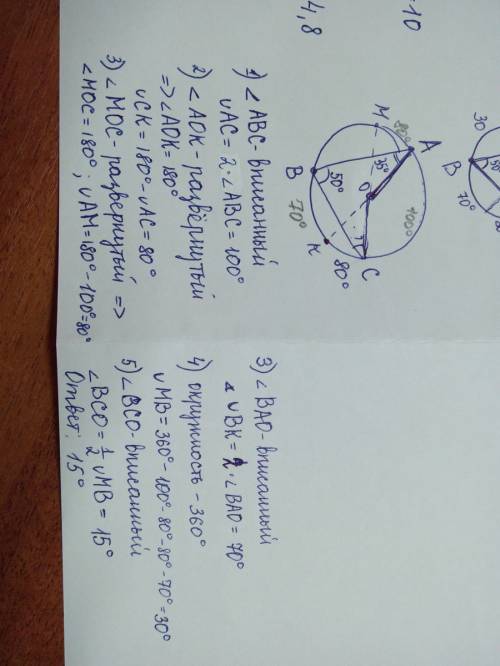 10
4,8
30
B
50
70°
M
80°
A
35°
100°
O
B
50°
70°
K
80°
C
1) ∠ABC-вписанный
◡AC = 2·∠ABC = 100°
2) ∠AOK-развёрнутый
=> ∠AOK = 180°
◡CK = 180°-◡AC = 80°
3) ∠MOC-развернутый =>
∠MOC = 180°; ◡AM = 180°-100°=80°
3) ∠BAO-вписанный
◡BK = 2·∠BAO = 70°
4) окружность - 360°
◡MB = 360°-100°-80°-80°-70°=30°
5) ∠BCO-вписанный
∠BCO = 1/2 ◡MB = 15°
Ответ: 15°